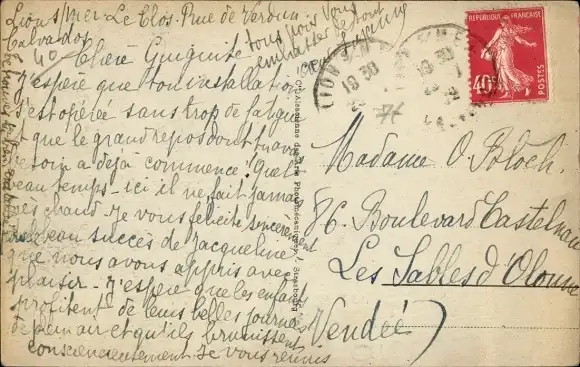 Lion s/mer - Le Clos - Rue de Verdun
Calvados
tous pour vous
embrasser le tout
Chère Guiguite
J'espère que ton installation
s'est opérée sans trop de fatigue
et que le grand repos dont tu avais
besoin a déjà commencé. Quel
beau temps - ici il ne fait jamais
très chaud. Je vous félicite sincèrement
du beau succès de Jacqueline
que nous avons appris avec
plaisir - J'espère que les enfants
profitent de leurs belles journées
de plein air et qu'ils brunissent
consciencieusement. Je vous réunis
Cie Alsacienne des Arts Photomécaniques, Strasbourg
RÉPUBLIQUE FRANÇAISE
40c
POSTES
LION S/MER
19 30
76
Madame O. Bloch
86 Boulevard Castelnau
Les Sables d'Olonne
Vendée